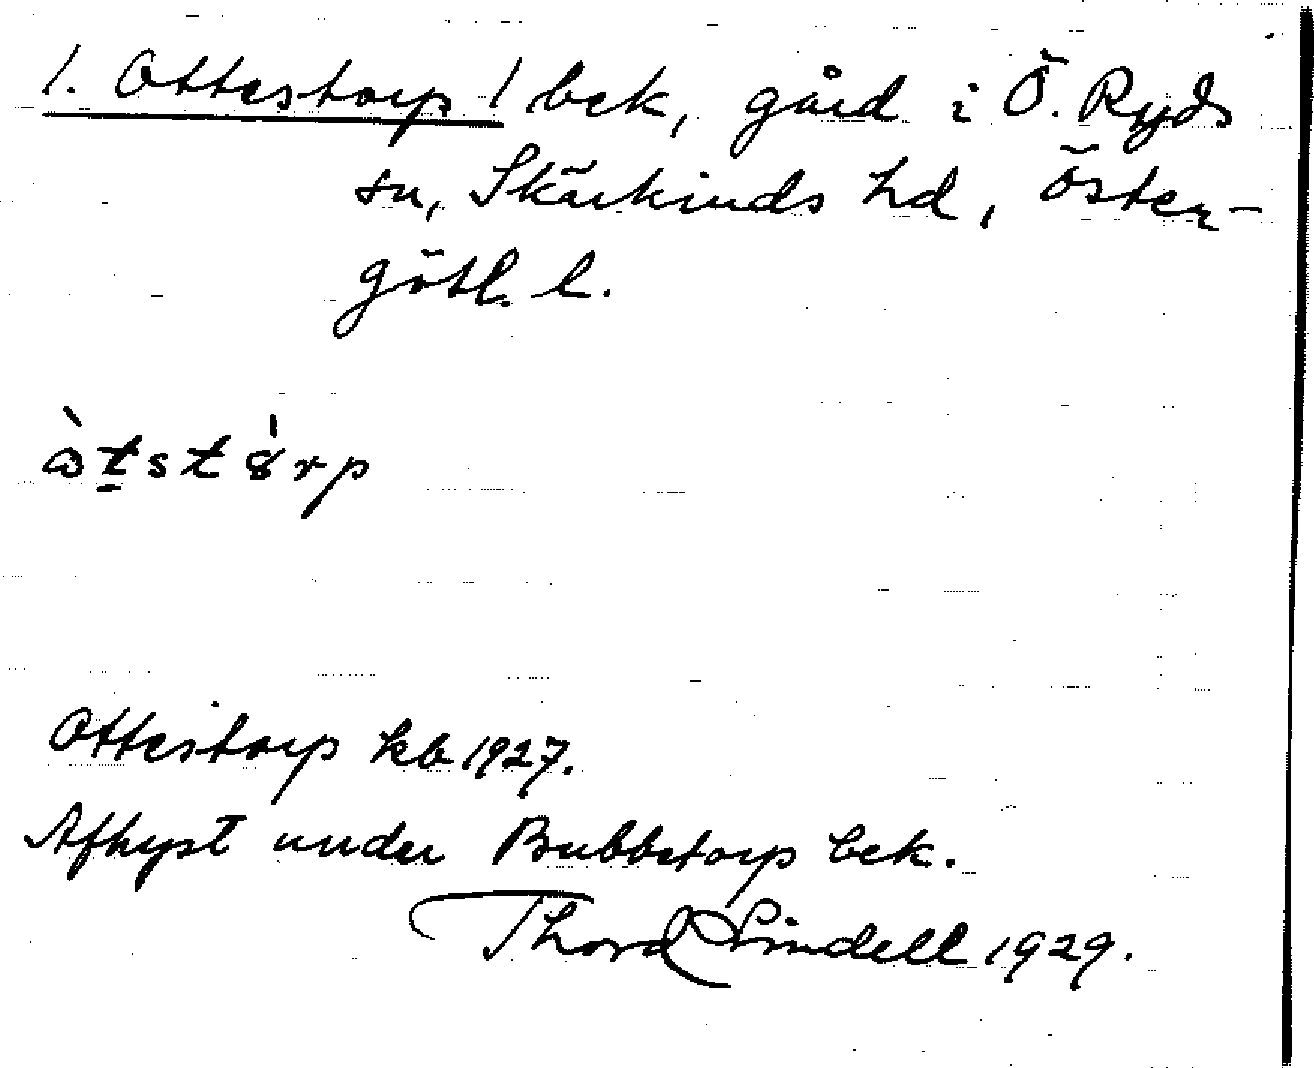 1. Ottestorp 1 bek, gård i Ö. Ryds
sn, Skärkinds hd, Öster-
götl. l.
Ottestorp kb 1927.
Afhyst under Bubbetorp bek.
Thord Lindell 1929.